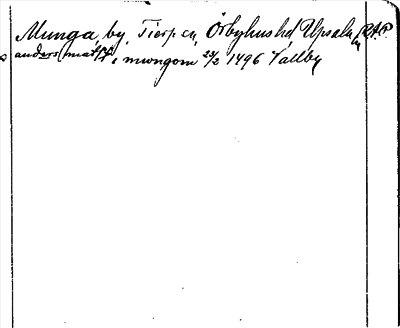 Munga, by, Tierp sn, Örbyhus hd Upsala l. RAP.
anders mats i mwngom 23/2 1496 Vallby